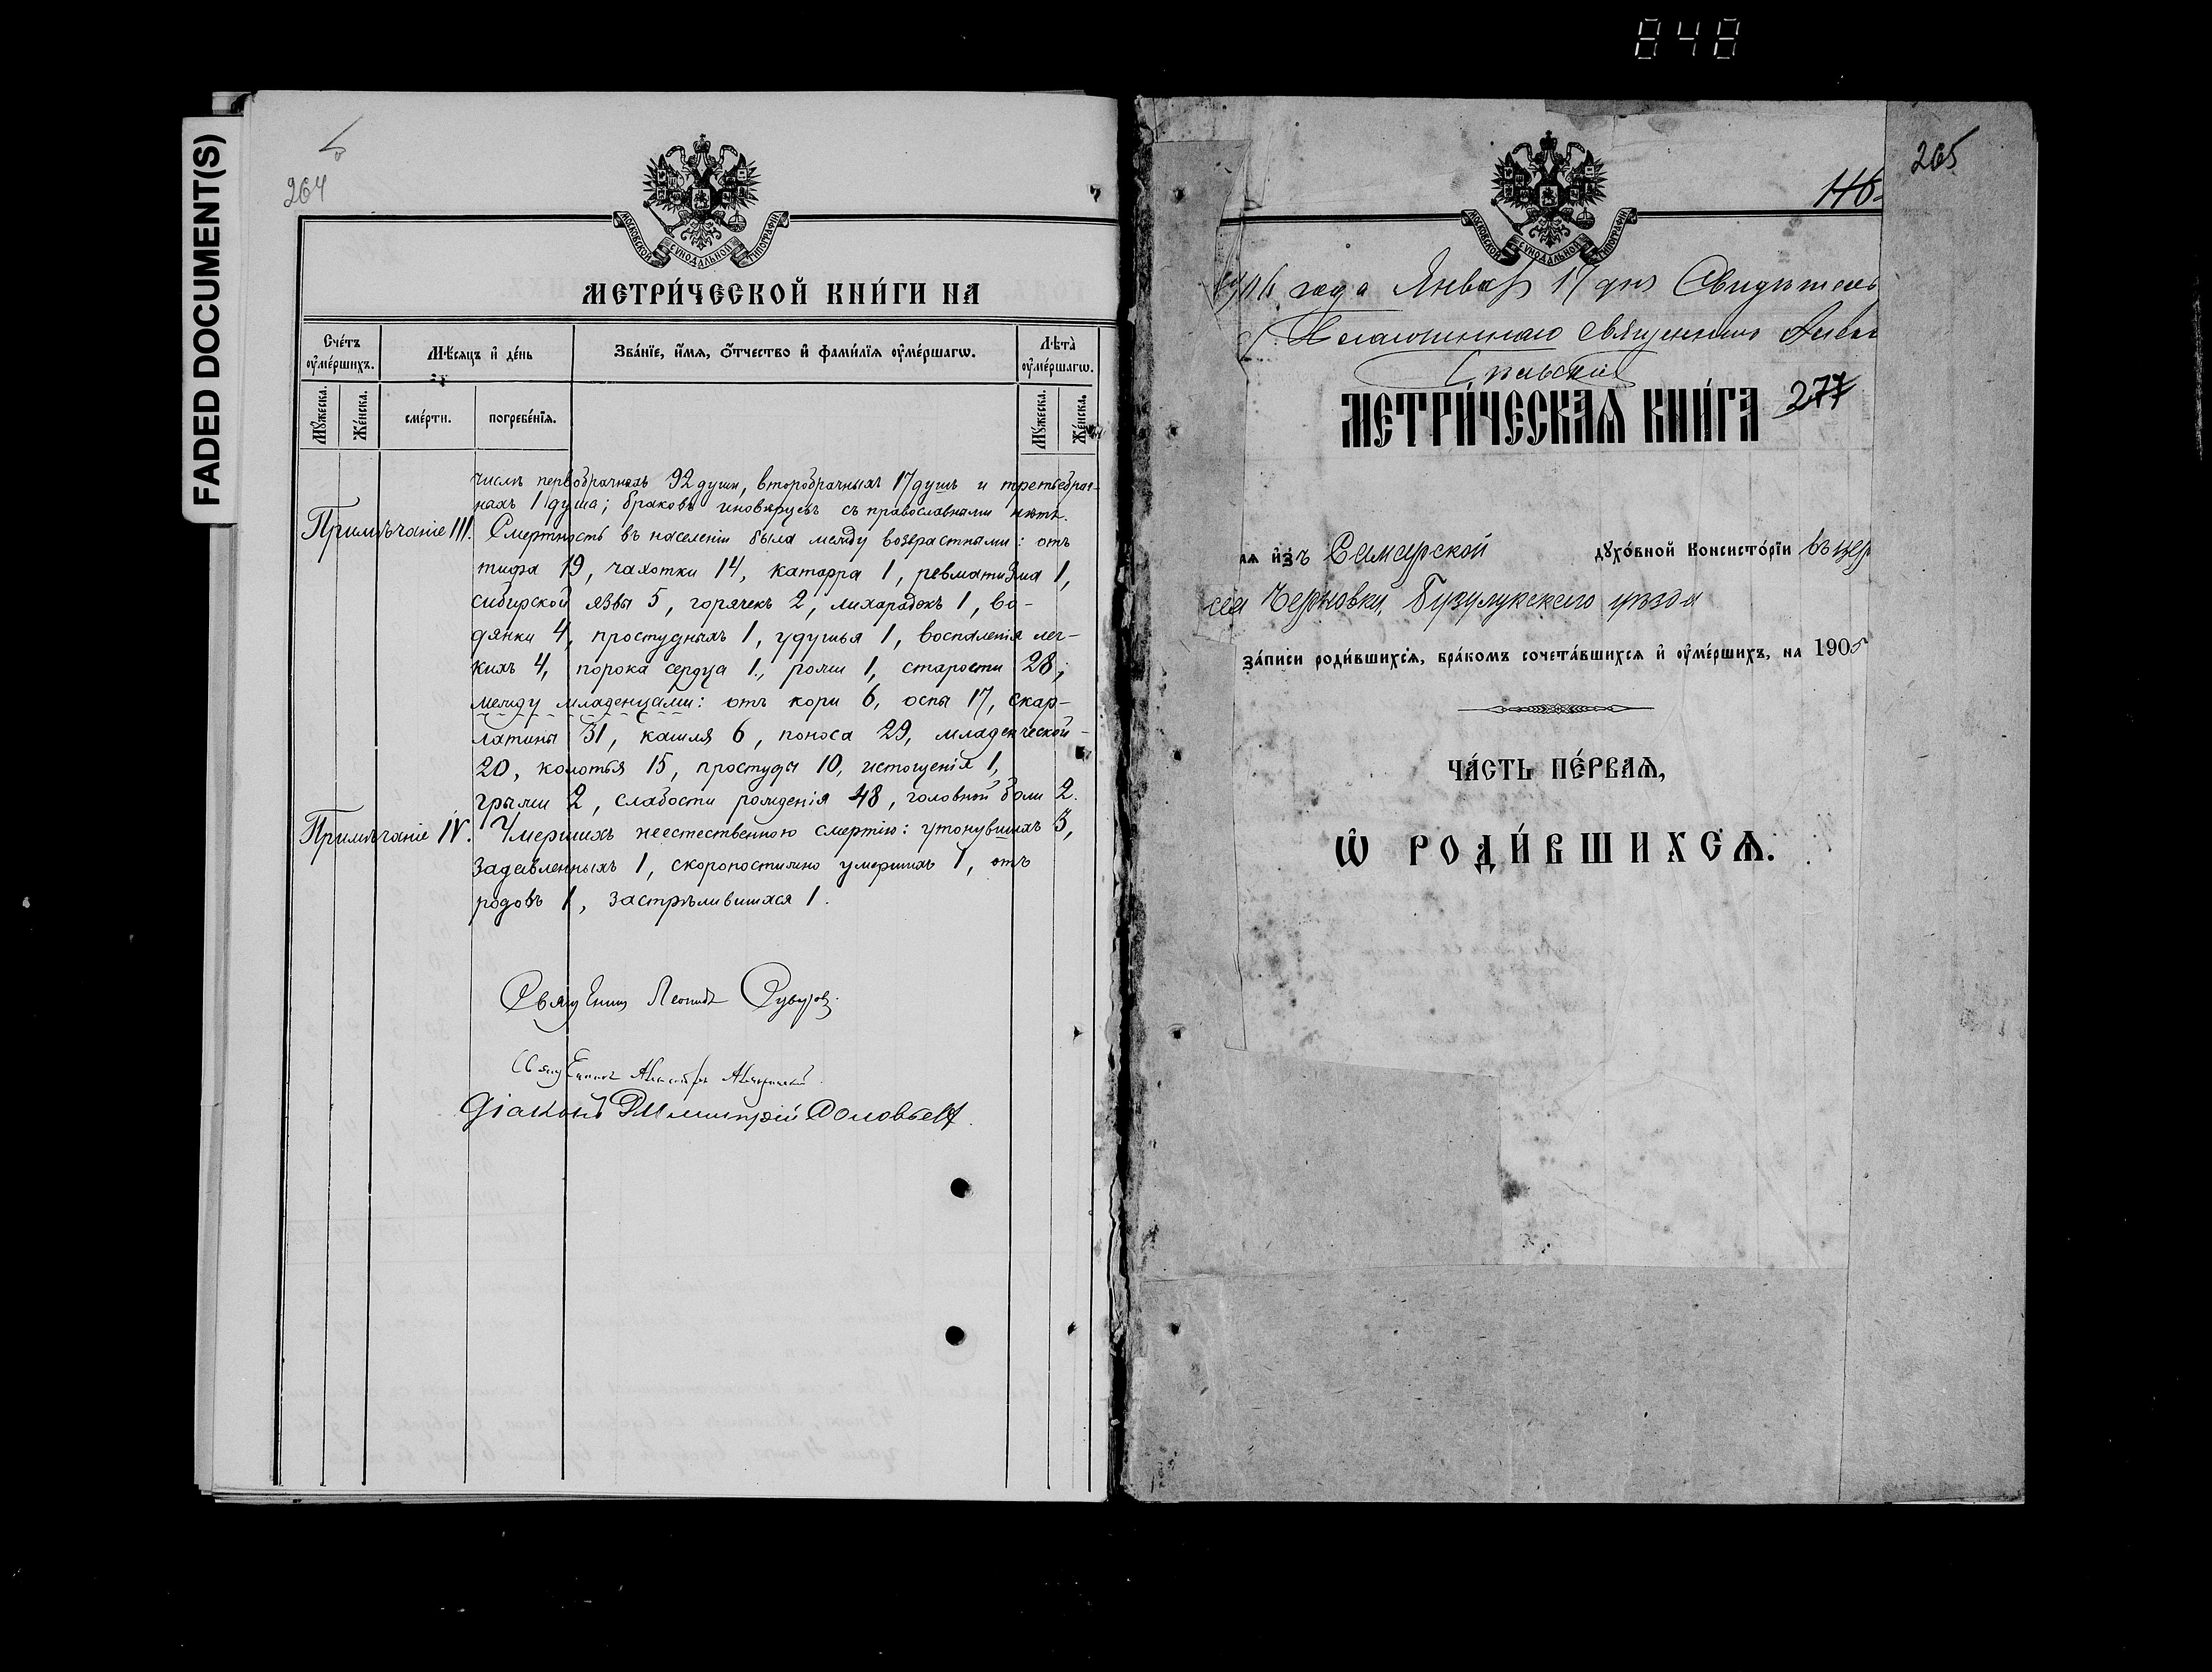 848
FADED DOCUMENT(S)
264
МОСКОВСКОЙ СУНОДАЛЬНОЙ ТИПОГРАФІИ
МЕТРИ́ЧЕСКОЙ КНИ́ГИ НА
Сче́тъ оу҆ме́ршихъ.
Мѣ́сяцъ и҆ де́нь
Зва́нїе, и҆́мя, ѻ҆́тчество и҆ фами́лїя оу҆ме́ршагѡ.
Лѣ́та оу҆ме́ршагѡ.
Мꙋ́жеска.
Же́нска.
сме́рти.
погребе́нїя.
Мꙋ́жеска.
Же́нска.
числѣ первобрачныхъ 92 души, второбрачныхъ 17 душъ и третьебрач-
ныхъ 1 душа; браковъ иновѣрцевъ съ православными нѣтъ.
Примѣчаніе III. Смертность въ населеніи была между возрастными: отъ
тифа 19, чахотки 14, катарра 1, ревматизма 1,
сибирской язвы 5, горячекъ 2, лихарадокъ 1, во-
дянки 4, простудныхъ 1, удушья 1, воспаленія лег-
кихъ 4, порока сердца 1, рожи 1, старости 28;
между младенцами: отъ кори 6, оспы 17, скар-
латины 31, кашля 6, поноса 29, младенческой-
20, колотья 15, простуды 10, истощенія 1,
грыжи 2, слабости рожденія 48, головной боли 2.
Примѣчаніе IV. Умершихъ неестественною смертію: утонувшихъ 3,
задавленныхъ 1, скоропостижно умершихъ 1, отъ
родовъ 1, застрѣлившихся 1.
Священникъ Леонидъ
Священникъ
Діаконъ Димитрій Соловьевъ.
265
116
МОСКОВСКОЙ СУНОДАЛЬНОЙ ТИПОГРАФІИ
1906 года Январ 17 дня Свидѣтель
священника
МЕТРИ́ЧЕСКАѦ КНИ́ГА 277
ая и҆зъ Самарской дꙋхо́вной Консисто́рїи въ цер
села Черновки Бузулукскаго уѣзда
за́писи роди́вшихсѧ, бра́комъ сочета́вшихся и҆ оу҆ме́ршихъ, на 1905
ЧА́СТЬ ПЕ́РВАѦ,
Ѡ҆ РОДИ́ВШИХСѦ.